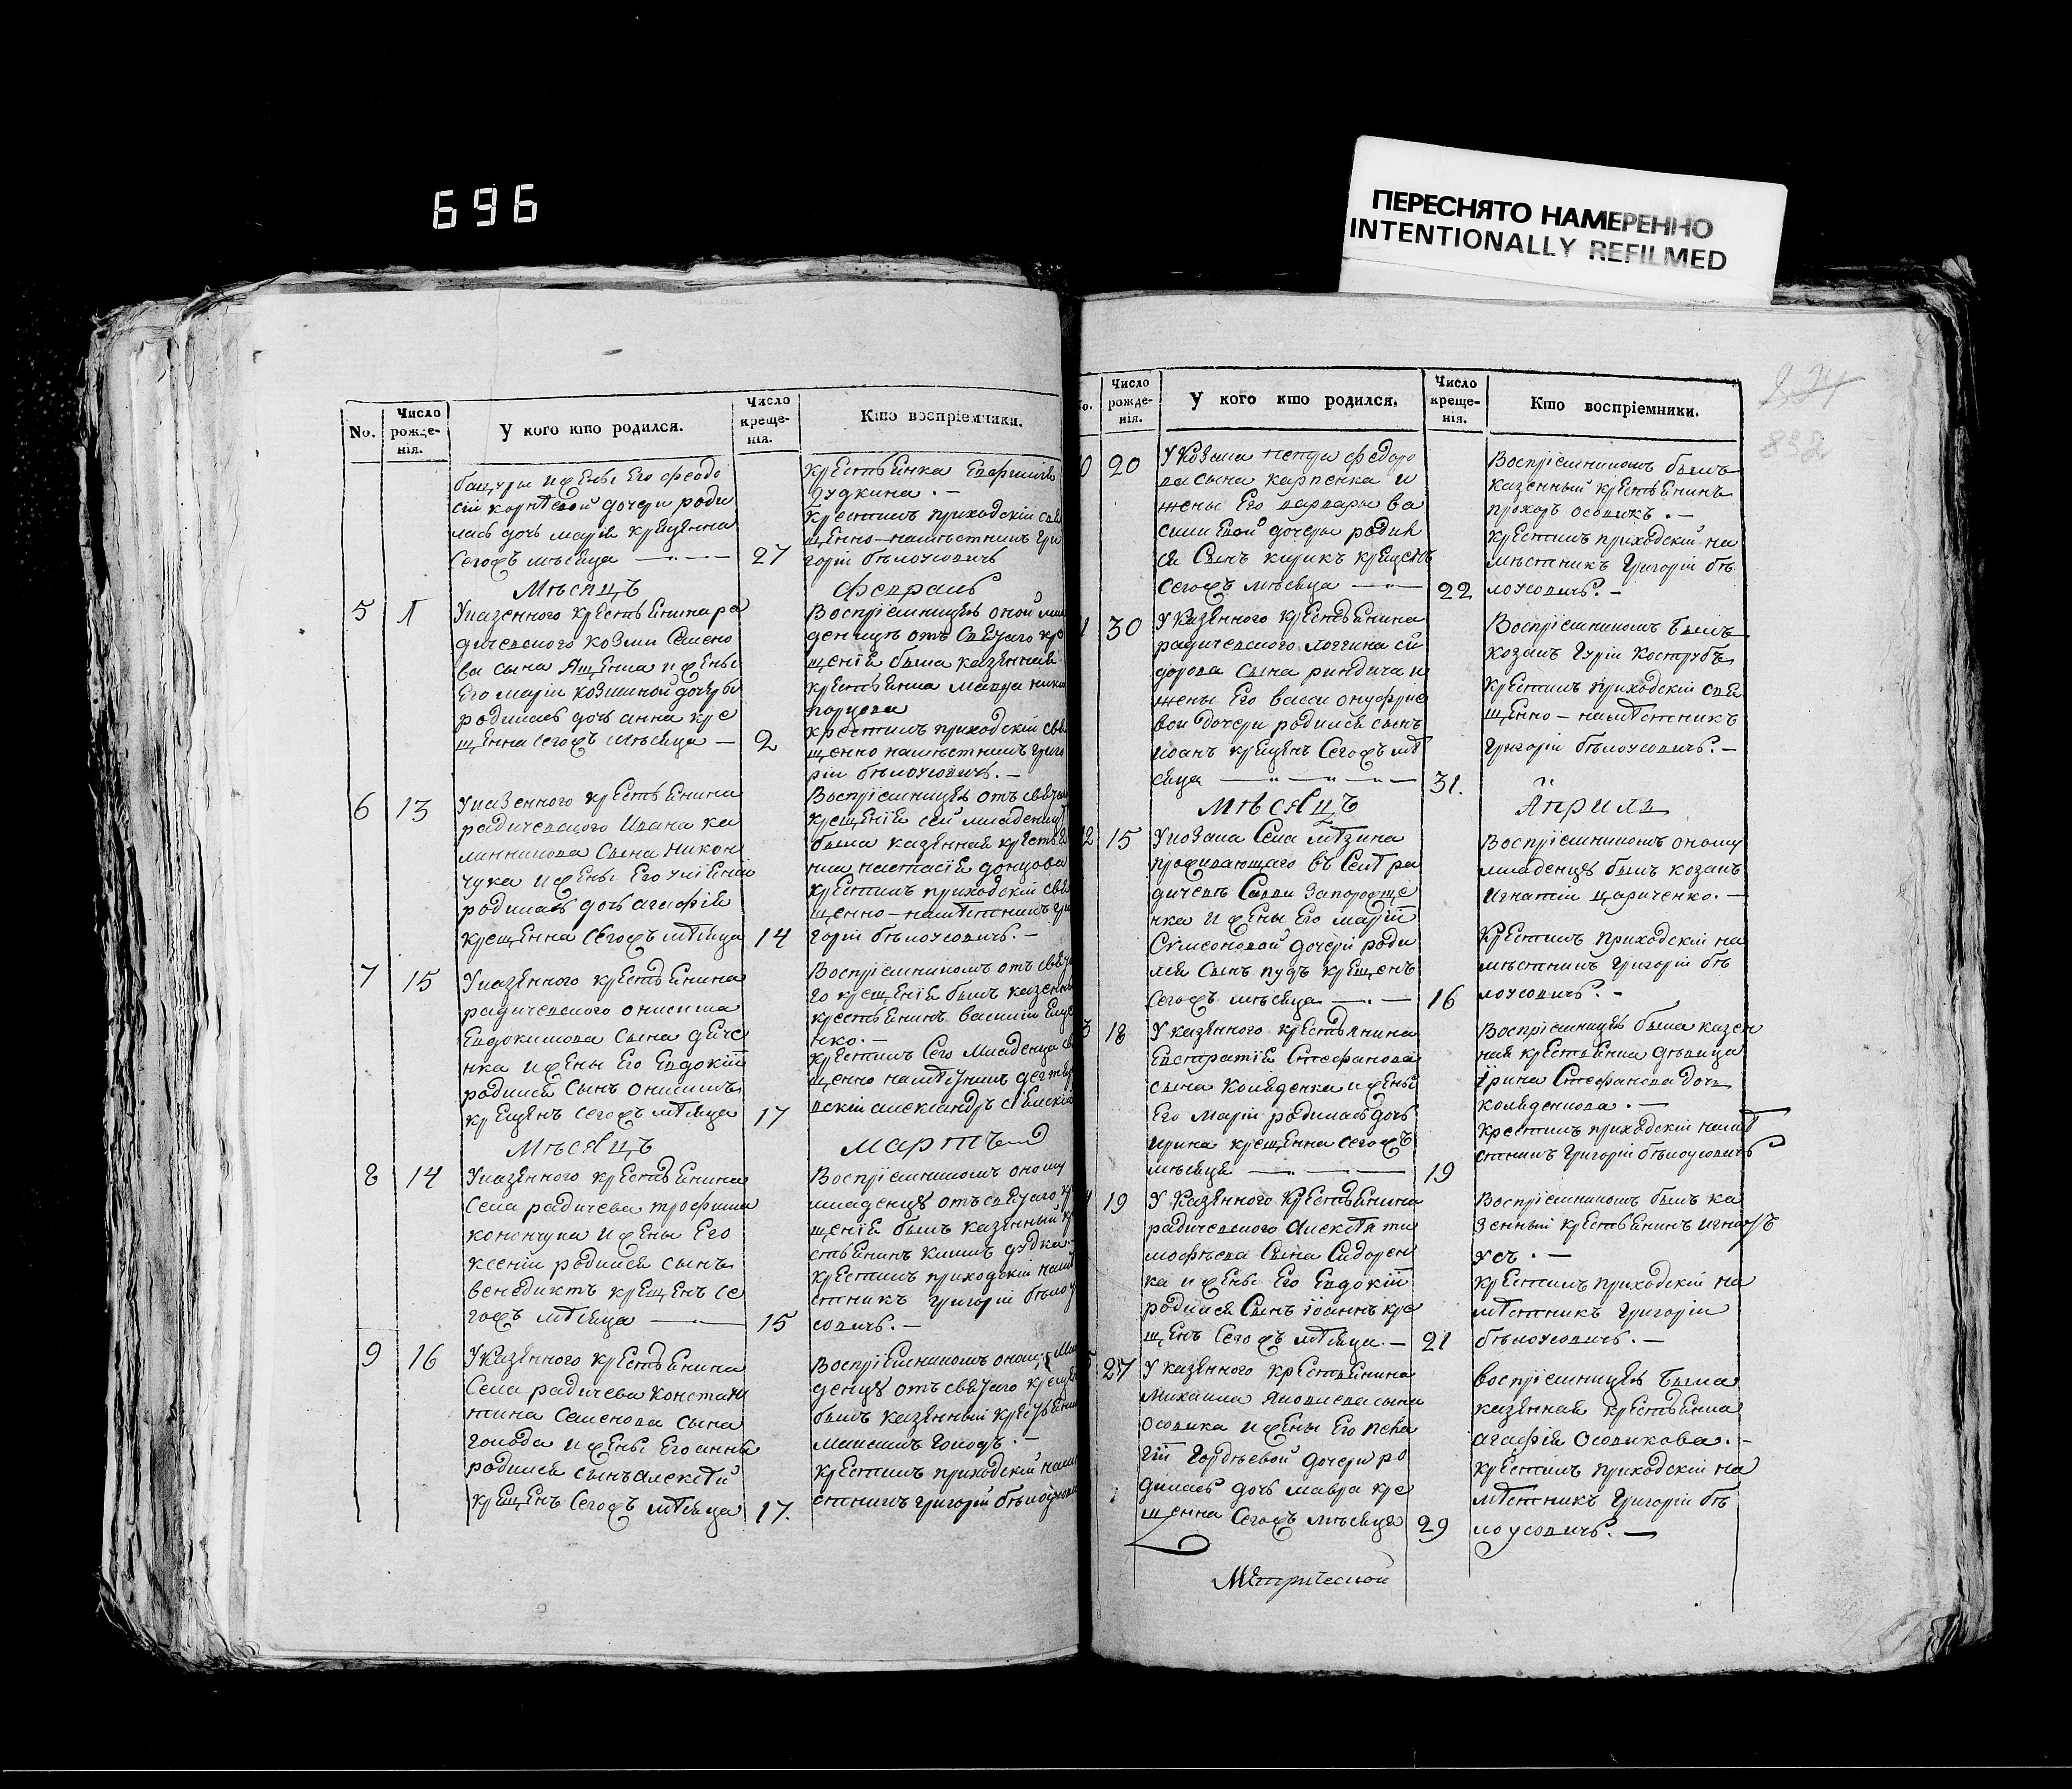 696
ПЕРЕСНЯТО НАМЕРЕННО
INTENTIONALLY REFILMED
No.
Число рожде-нія.
У кого кто родился.
Число креще-нія.
Кто воспріемники.
жены Его феодо
сіи корнѣевой дочери роди
лась дочь марія крещенна
сегожъ мѣсяца 27
крестьянка
Крестилъ приходскій свя
щенно-намѣстникъ гри
горій бѣлоусовичь
Мѣсяцъ февраль
5 1
У казенного крестьянина ра
дичевского козми семено
ва сына и жены
Его маріи козминой дочери
родилась дочь анна кре
щенна сегожъ мѣсяца — 2
Воспріемницею оной мла
деницѣ отъ святаго кре
щенія была казенная
крестьянка мавра
крестилъ приходскій свя
щенно намѣстникъ григо
рій бѣлоусовичь. —
6 13
У казенного крестьянина
радичевского ивана ка
линникова сына никон
чука и жены Его улiянiи
родилась дочь агафія
крещенна сегожъ мѣсяца 14
Воспріемницею отъ святаго
крещенія сей младеницѣ
была казенная крестьян
ка настасія донцова
крестилъ приходскій свя
щенно-намѣстникъ гри
горій бѣлоусовичь. —
7 15
У казенного крестьянина
радичевского онисима
Евдокимова сына дяче
нка и жены Его Евдокіи
родился сынъ онисимъ
крещенъ сегожъ мѣсяца 17
Воспріемникомъ отъ свята
го крещенія былъ казенный
крестьянинъ василій
нко. —
крестилъ сего младенца свя
щенно намѣстникъ
александръ
Мѣсяцъ мартъ
8 14
У казенного крестьянина
села радичева трофима
конончука и жены Его
ксеніи родился сынъ
венедиктъ крещенъ се
гожъ мѣсяца — 15
Воспріемникомъ оному
младенцу отъ святаго кр
щенія былъ казенный кр
стьянинъ климъ дудка. —
крестилъ приходскій намѣ
стникъ григорій бѣлоу
совичь. —
9 16
У казенного крестьянина
села радичева констан
тина семенова сына
голода и жены Его анны
родился сынъ алексѣй
крещенъ сегожъ мѣсяца 17.
Воспріемникомъ оному мла
денцу отъ святаго креще
былъ казенный крестьянин
максимъ голодъ. —
крестилъ приходскій намѣ
стникъ григорій бѣлоусович
No.
Число рожде-нія.
У кого кто родился.
Число креще-нія.
Кто воспріемники.
0 20
У козака федоро
ва сына карпенка и
жены Его варвары ва
силиевой дочеры родил
ся сынъ кирикъ крещенъ
сегожъ мѣсяца — 22
Воспріемникомъ былъ
казенный крестьянинъ
прохоръ осовикъ. —
крестилъ приходскій на
мѣстникъ григорій бѣ
лоусовичь. —
1 30
У казенного крестьянина
радичевского логгина си
дорова сына риндича и
жены Его васси онуфрие
вой дочери родился сынъ
иоанъ крещенъ сегожъ мѣ
сяца — 31.
Воспріемникомъ былъ
козакъ гурій кострубъ
крестилъ приходскій свя
щенно-намѣстникъ
григорій бѣлоусовичь. —
Мѣсяцъ Априль
2 15
У козака села мѣзина
проживающаго въ селѣ ра
дичевѣ саввы запороще
нка и жены Его маріи
симеоновой дочери роди
лся сынъ пудъ крещенъ
сегожъ мѣсяца — 16
Воспріемникомъ оному
младенцу былъ козакъ
игнатій цариченко. —
крестилъ приходскій на
мѣстникъ григорій бѣ
лоусовичь. —
3 18
У казенного крестьянина
Евстратія стефанова
сына коляденка и жены
Его маріи родилась дочь
ирина крещенна сегожъ
мѣсяца — 19
Воспріемницею была казен
ная крестьянка дѣвица
ірина стефанова дочь
коляденкова. —
крестилъ приходскій намѣ
стникъ григорій бѣлоусовичь
4 19
У казенного крестьянина
радичевского алексѣя ти
мофѣева сына сидорен
ка и жены Его Евдокіи
родился сынъ іоаннъ кре
щенъ сегожъ мѣсяца — 21
Воспріемникомъ былъ ка
зенный крестьянинъ игнатъ
усъ. —
крестилъ приходскій на
мѣстникъ григорій
бѣлоусовичь. —
5 27
У казенного крестьянина
михаила яковлева сына
осовика и жены Его пела
гіи гордѣевой дочери ро
дилась дочь мавра кре
щенна сегожъ мѣсяца 29
воспріемницею была
казенная крестьянка
агафія осовикова. —
крестилъ приходскій на
мѣстникъ григорій бѣ
лоусовичь. —
Метрической